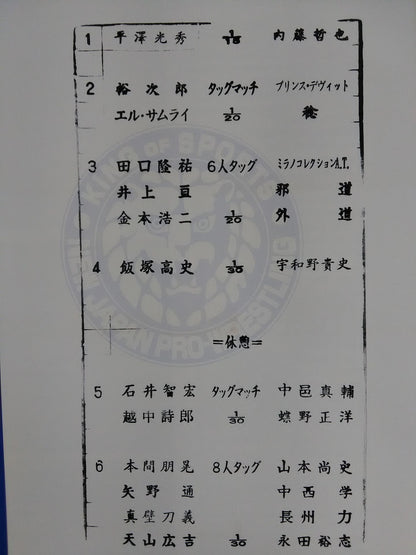 1 平澤光秀 1/15 内藤哲也
2 裕次郎 タッグマッチ プリンス・デヴィット
エル・サムライ 1/20 稔
3 田口隆祐 6人タッグ ミラノコレクションA.T.
井上亘 邪道
金本浩二 1/20 外道
4 飯塚高史 1/30 宇和野貴史
=休憩=
5 石井智宏 タッグマッチ 中邑真輔
越中詩郎 1/30 蝶野正洋
6 本間朋晃 8人タッグ 山本尚史
矢野通 中西学
真壁刀義 長州力
天山広吉 1/30 永田裕志
KING OF SPORTS
NEW JAPAN PRO-WRESTLING